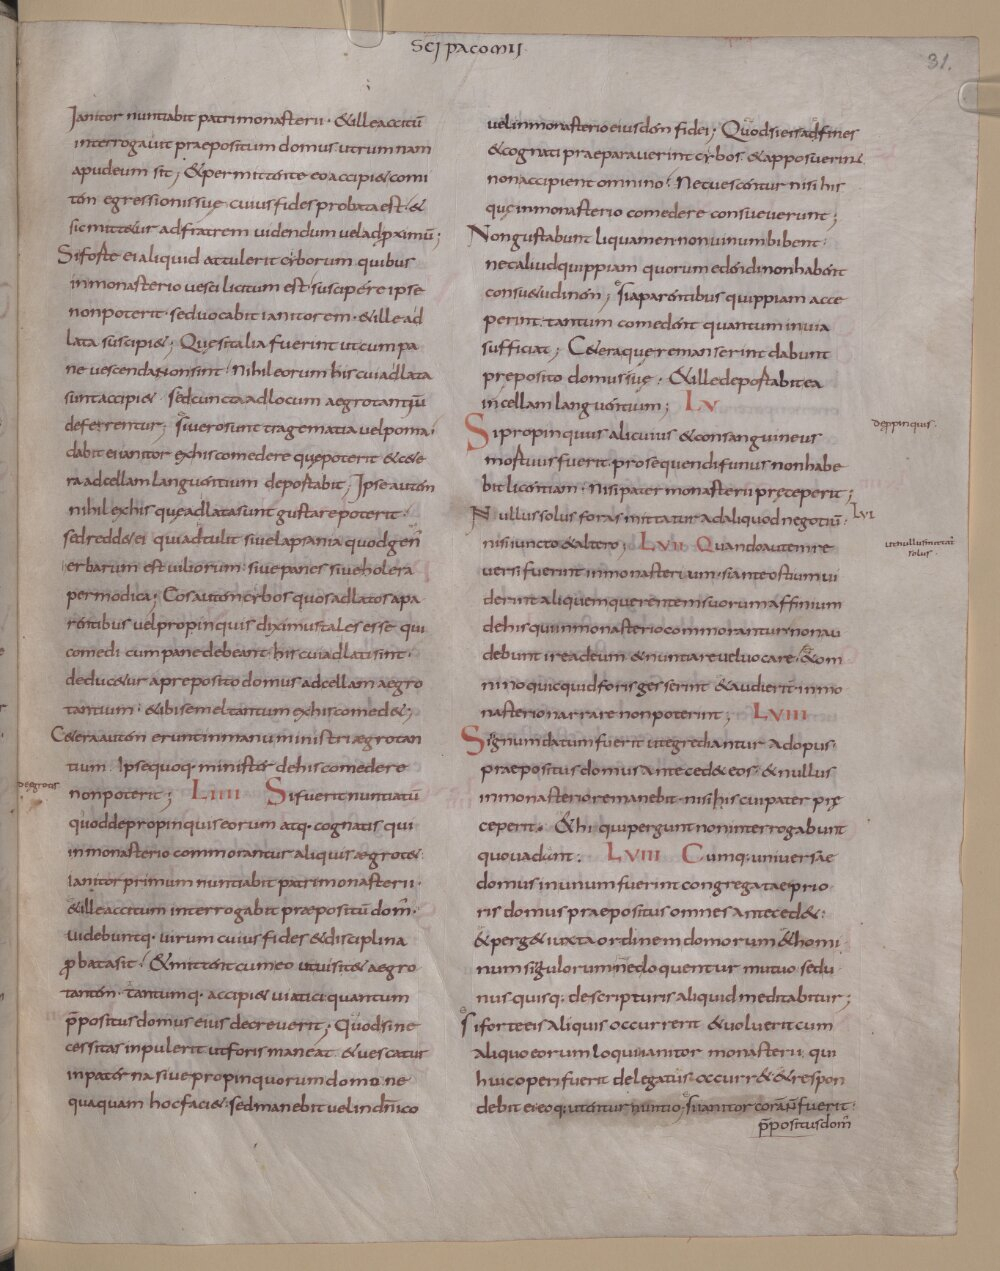 SCI PACOMII
31.
Ianitor nuntiabit patri monasterii · & ille accitū
interrogauit praepositum domus utrum nam
apud eum sit ; & permittente eo accipi& comi
tem egressionis suę cuius fides probata est · &
sic mitt&ur ad fratrem uidendum uel ad ꝓximū ;
Si forte ei aliquid attulerit cyborum quibus
in monasterio uesci licitum est · suscipere ipse
non poterit · sed uocabit ianitorem · & ille ad
lata suscipi& ; Quę si talia fuerint ut cum pa
ne uescenda non sint · nihil eorum his cui adlata
sunt accipi& · sed cuncta ad locum aegrotantiū
deferrentur ; Si uero sunt tragematia uel poma ·
dabit ei ianitor ex his comedere quę poterit & c&e
ra ad cellam languentium deportabit ; Ipse autem
nihil ex his quę adlata sunt gustare poterit ·
sed redd& ei qui adtulit siue lapsania quod gen'
erbarum est uiliorum · siue panes siue holera
permodica ; Eos autem cybos quos adlatos a pa
rentibus uel propinquis diximus tales esse qui
comedi cum pane debeant · his cui adlati sint ·
deduc&ur a preposito domus ad cellam aegro
tantium · & ibi semel tantum ex his comed& ;
C&era autem erunt in manu ministri ægrotan
tium · Ipse quoq· minister de his comedere
de egrotis
non poterit ; LIIII Si fuerit nuntiatū
quod de propinquis eorum atq· cognatis qui
in monasterio commorantur aliquis ægrot& ·
ianitor primum nuntiabit patri monasterii ·
& ille accitum interrogabit præpositū dom' ·
uidebuntq· uirum cuius fides & disciplina
ꝓbata sit · & mittent cum eo ut uisit& aegro
tantem · tantumq· accipi& uiatici quantum
p̄positus domus eius decreuerit ; Quod si ne
cessitas inpulerit ut foris maneat & uescatur
in paterna siue propinquorum domo · ne
quaquam hoc faci& · sed manebit uel in dn̄ico
uel in monasterio eiusdem fidei ; Quod si eis adfines
& cognati praeparauerint cybos & apposuerint
non accipient omnino · Nec uescentur nisi his
quę in monasterio comedere consueuerunt ;
Non gustabunt liquamen non uinum bibent ·
nec aliud quippiam quorum edendi non habent
consu&udinem ; Si a parentibus quippiam acce
perint · tantum comedent quantum in uia
sufficiat ; C&era quę remanserint dabunt
preposito domus suę · & ille deportabit ea
in cellam languentium ; LV
de ꝓpinquis ·
Si propinquus alicuius & consanguineus
mortuus fuerit · prosequendi funus non habe
bit licentiam · nisi pater monasterii preceperit ;
Nullus solus foras mittatur ad aliquod negotiū · LVI
ut nullus mittat'
solus ·
nisi iuncto & altero ; LVII Quando autem re
uersi fuerint in monasterium · si ante ostium ui
derint aliquem querentem suorum affinium
de his qui in monasterio commorantur non au
debunt ire ad eum & nuntiare uel uocare · & om
nino quicquid foris gesserint & audierint in mo
nasterio narrare non poterint ; LVIII
Signum datum fuerit ut egrediantur ad opus ·
praepositus domus anteced& eos · & nullus
in monasterio remanebit · nisi his cui pater pre
ceperit · & hi qui pergunt non interrogabunt
quo uadant · LVIII Cumq· uniuersae
domus in unum fuerint congregatae prio
ris domus praepositus omnes anteced& ·
& perg& iuxta ordinem domorum & homi
num singulorum nec loquentur mutuo · sed u
nusquisq· de scripturis aliquid meditabitur ;
Si forte eis aliquis occurrerit & uoluerit cum
aliquo eorum loqui ianitor monasterii qui
huic operi fuerit delegatus occurr& & respon
debit ei eoq· utentur nuntio · Si ianitor coram n̄ fuerit ·
p̄positus dom'